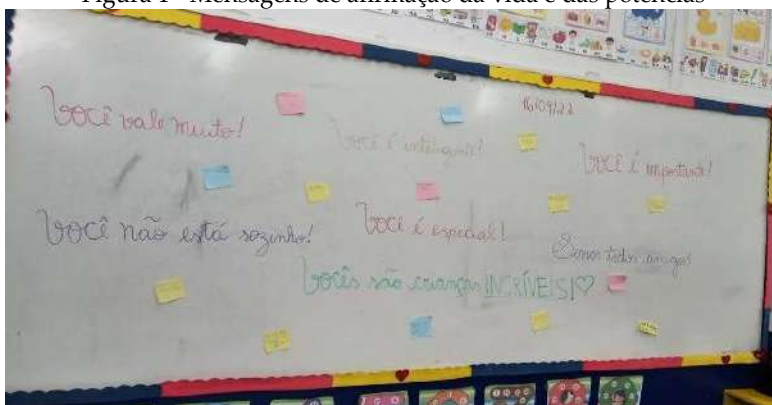 Figura 1 - Mensagens de afirmação da vida e das potências
16/09/22
Você vale muito!
Você é inteligente!
Você é importante!
Você não está sozinho!
Você é especial!
Somos todos amigos
Vocês são crianças INCRÍVEIS!♡